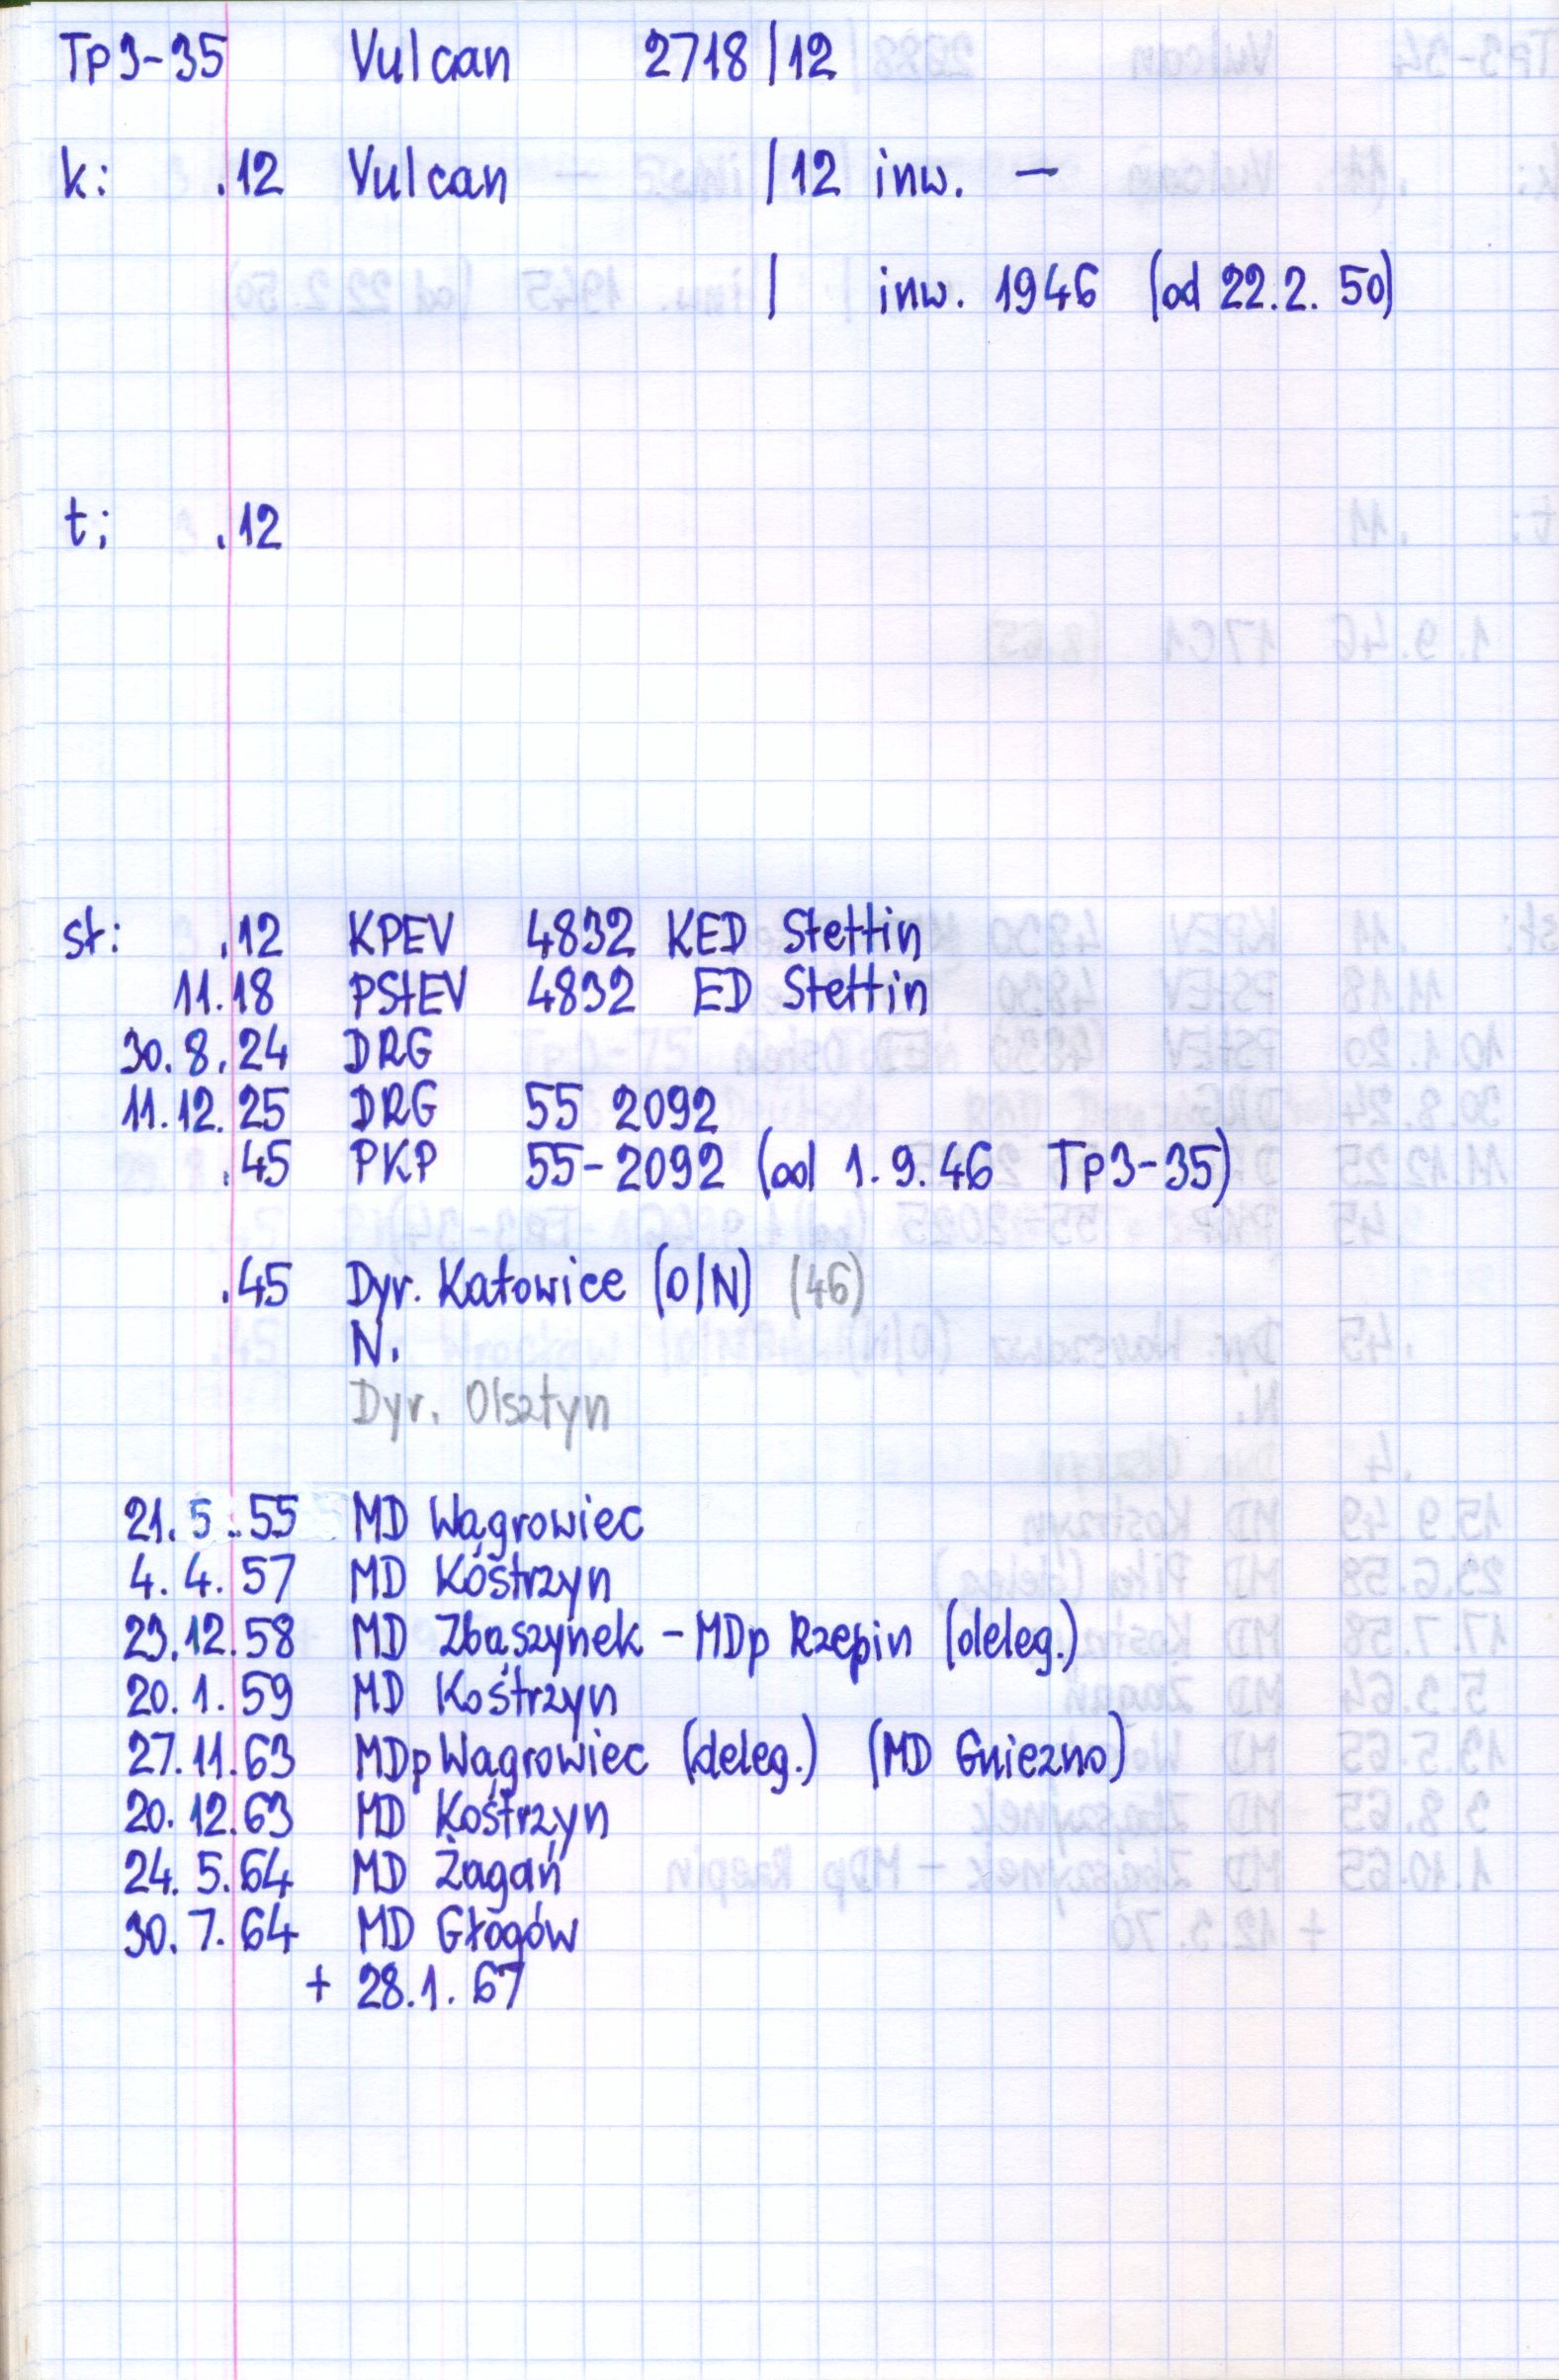 Tp3-35 Vulcan 2718/12
k: .12 Vulcan /12 inw. –
/ inw. 1946 (od 22.2.50)
t: .12
st: .12 KPEV 4832 KED Stettin
11.18 PStEV 4832 ED Stettin
30.8.24 DRG
11.12.25 DRG 55 2092
.45 PKP 55-2092 (od 1.9.46 Tp3-35)
.45 Dyr. Katowice (O/N) (46)
N.
Dyr. Olsztyn
21.5.55 MD Wągrowiec
4.4.57 MD Kostrzyn
23.12.58 MD Zbąszynek - MDp Rzepin (deleg.)
20.1.59 MD Kostrzyn
27.11.63 MDp Wągrowiec (deleg.) (MD Gniezno)
20.12.63 MD Kostrzyn
24.5.64 MD Żagań
30.7.64 MD Głogów
+ 28.1.67